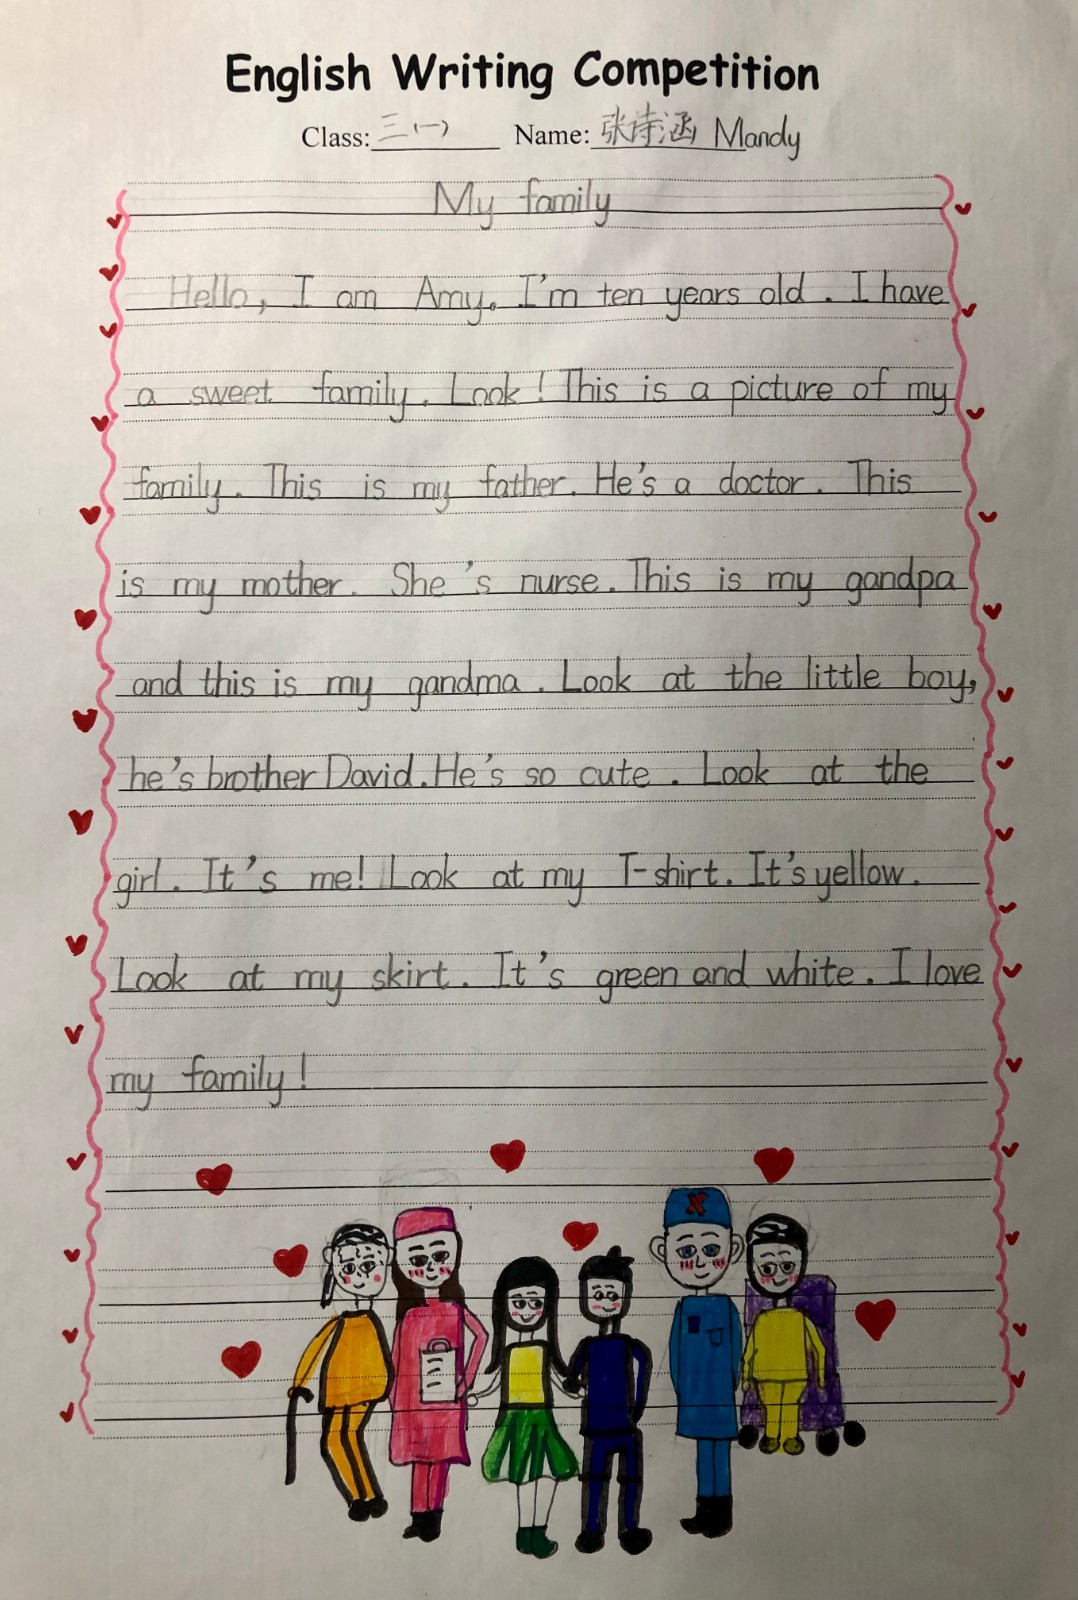 English Writing Competition
Class: 三(一) Name: 张诗涵 Mandy
My family
Hello, I am Amy. I'm ten years old. I have
a sweet family. Look! This is a picture of my
family. This is my father. He's a doctor. This
is my mother. She's nurse. This is my gandpa
and this is my gandma. Look at the little boy,
he's brother David. He's so cute. Look at the
girl. It's me! Look at my T-shirt. It's yellow.
Look at my skirt. It's green and white. I love
my family!